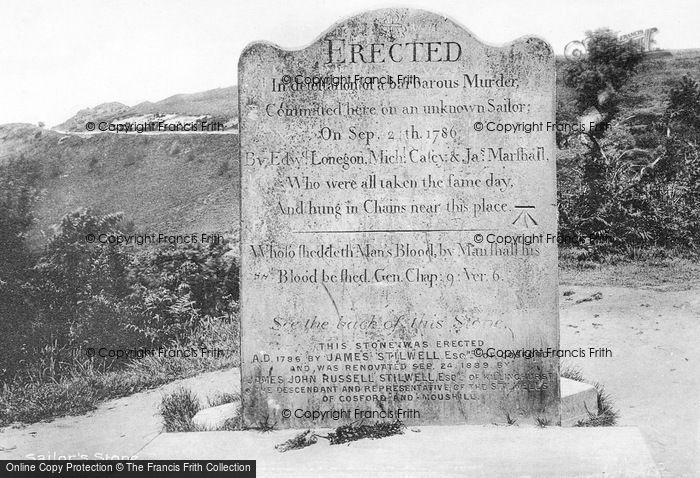 ERECTED
In detestation of a barbarous Murder,
Committed here on an unknown Sailor;
On Sep, 24th 1786
By Edwd. Lonegon, Michl. Casey & Jas. Marshall,
Who were all taken the same day,
And hung in Chains near this place
Whoso sheddeth Man's Blood, by Man shall his
Blood be shed. Gen. Chap: 9: Ver. 6.
See the back of this Stone
THIS STONE WAS ERECTED
A.D. 1786 BY JAMES STILWELL ESQR. OF
AND WAS RENOVATED SEP. 24 1889 BY
JAMES JOHN RUSSELL STILWELL ESQR. OF
THE DESCENDANT AND REPRESENTATIVE OF THE STILWELLS
OF COSFORD AND MOUSHILL.
Sailor's Stone
© Copyright The Francis Frith Collection 2005. http://www.francisfrith.com
© Copyright Francis Frith
© Copyright Francis Frith
© Copyright Francis Frith
© Copyright Francis Frith
© Copyright Francis Frith
© Copyright Francis Frith
© Copyright Francis Frith
© Copyright Francis Frith